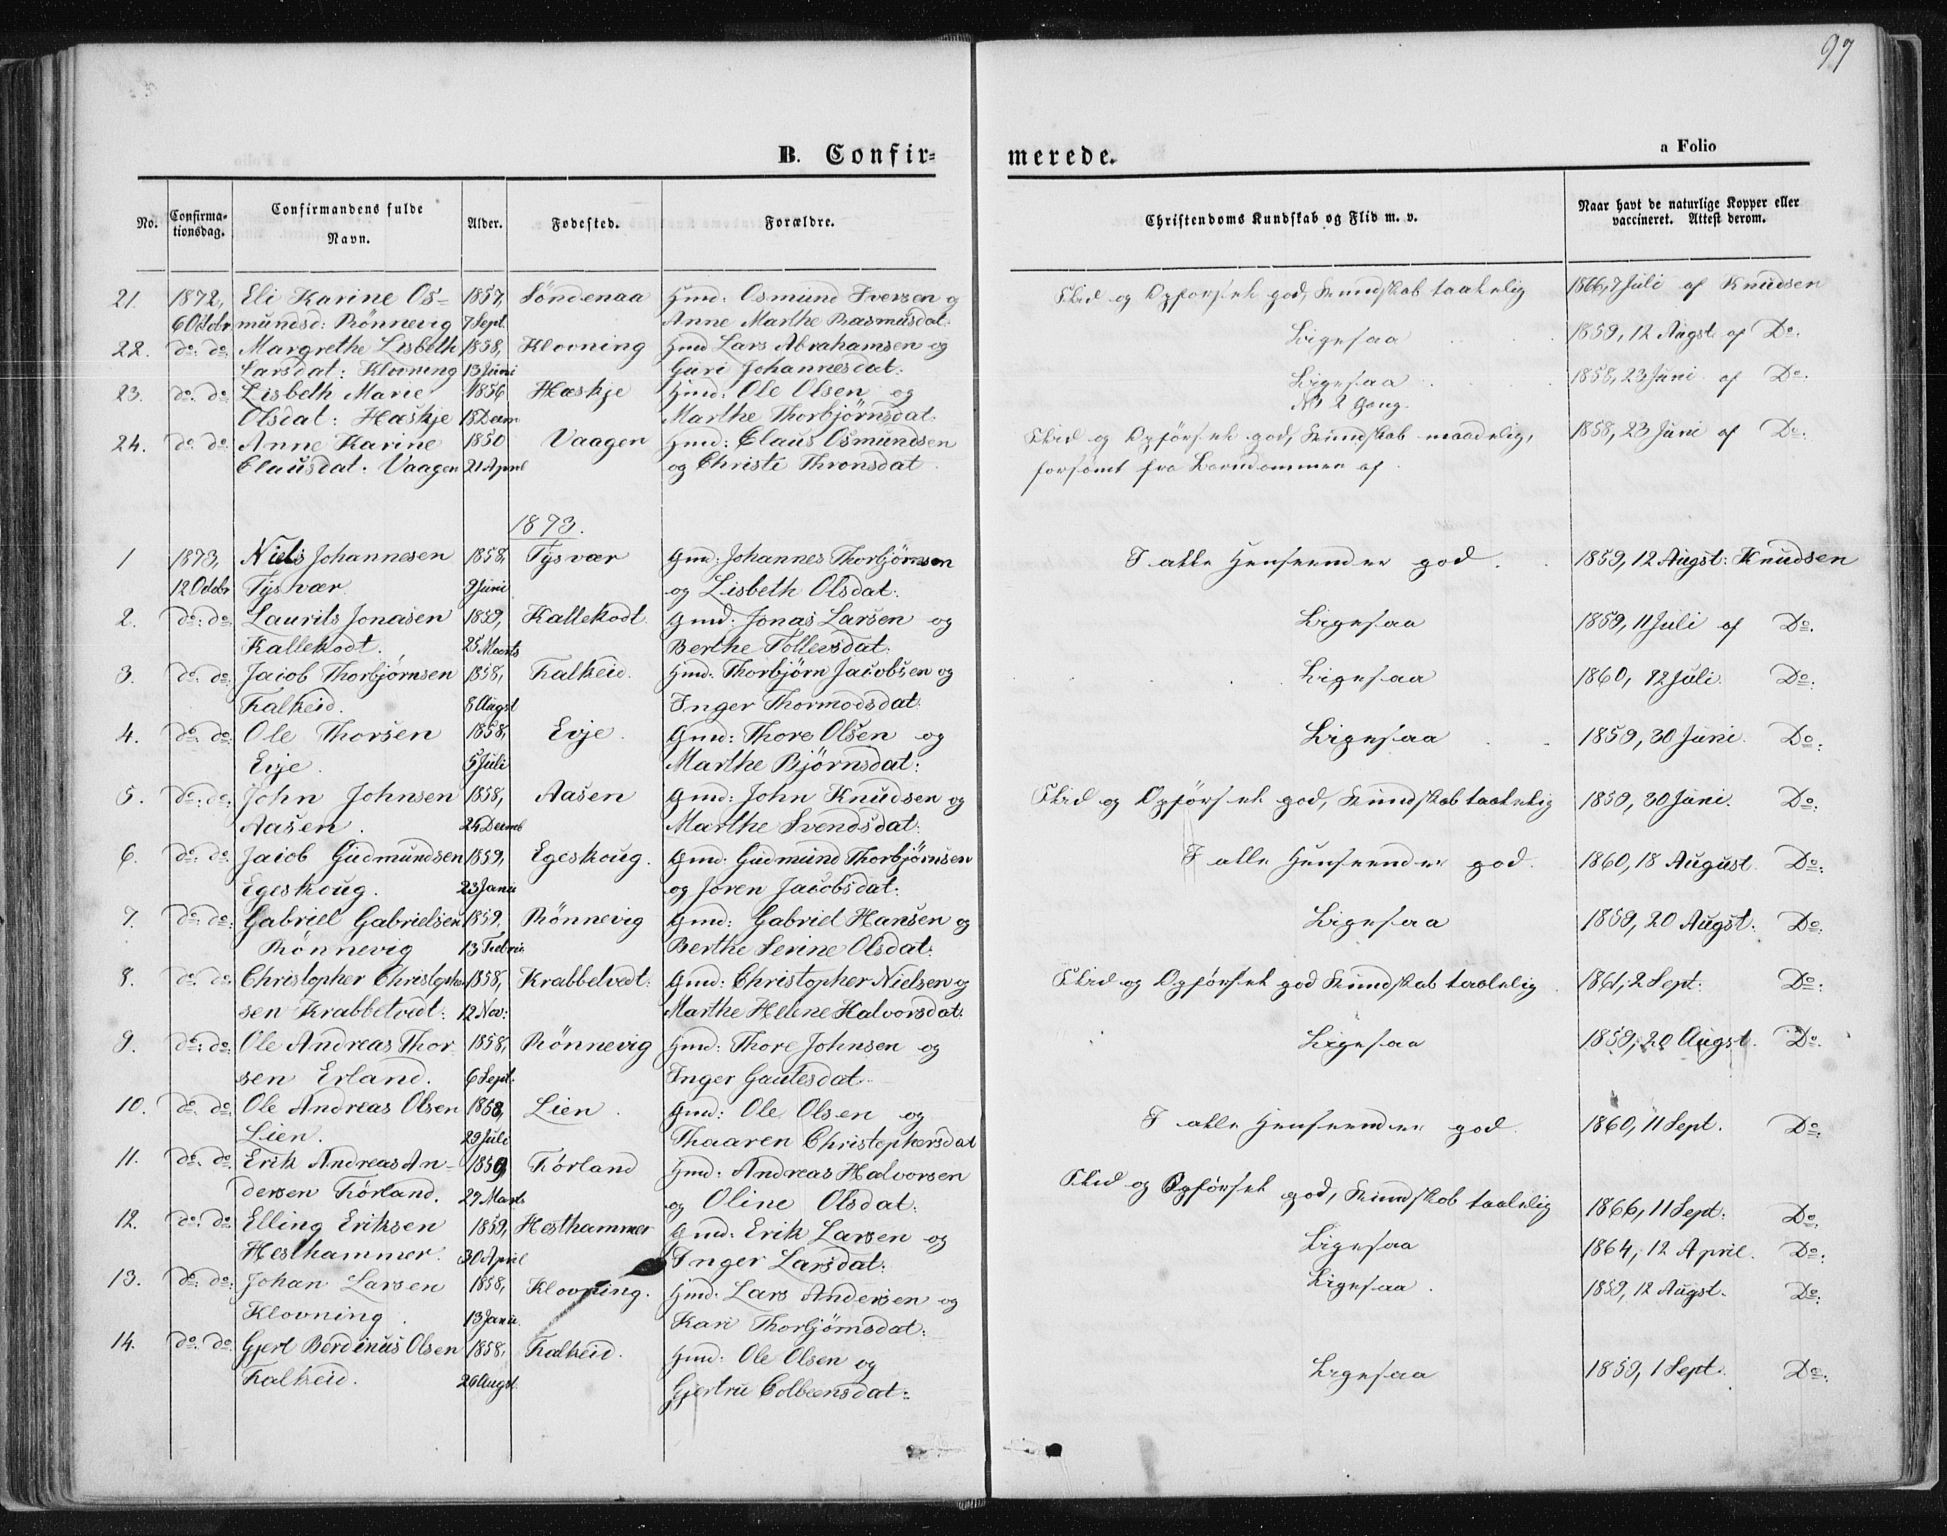 97
B. Confir=
merede.
a Folio
No.
Confirma-
tionsdag.
Confirmandens fulde
Navn.
Alder.
Fødested.
Forældre.
Christendoms Kundskab og Flid m. v.
Naar havt de naturlige Kopper eller
vaccineret. Attest derom.
21. 1872, Eli Karine Os- 1857, Söndenaa Hmd: Osmund Iversen og Flid og Opförsel god, Kundskab taalelig 1866, 7 Juli af Knudsen
6 Octobr mundsd: Rönnevig 7 Sept. Anne Marthe Rasmusdat:
22. do: do: Margrethe Lisbeth 1858, Klovning Hmd Lars Abrahamsen og Ligesaa 1859, 12 Augst af Do:
Larsdat: Klovning 13 Juni Guri Johannesdat:
23. do: do: Lisbeth Marie 1856 Hæskje Hmd: Ole Olsen og Ligesaa 1858, 23 Juni af Do:
Olsdat: Hæskje 18 Decm Marthe Thorbjörnsdat: 2 Gang.
24. do: do: Anne Karine 1850 Vaagen Hmd: Claus Osmundsen Flid og Opförsel god, Kundskab maadelig, 1858, 23 Juni af Do:
Clausdat: Vaagen 21 April og Christi Thronsdat forsömt fra Barndommen af.
1873.
1 1873, Niels Johannesen 1858, Tysvær Gmd: Johannes Thorbjörnsen I alle Henseender god. 1859, 12 Augst: Knudsen
12 Octobr Tysvær 9 Juni og Lisbeth Olsdat:
2. do: do: Laurits Jonasen 1859, Kallekodt Gmd: Jonas Larsen og Ligesaa 1859, 11 Juli af Do:
Kallekodt. 25 Marts Berthe Tollevsdat:
3. do: do: Jacob Thorbjörnsen 1858, Falkeid. Hmd: Thorbjörn Jacobsen og Ligesaa 1860, 12 Juli. Do:
Falkeid. 8 Augst Inger Thormodsdat:
4. do: do: Ole Thorsen 1858, Evje. Gmd: Thore Olsen og Ligesaa 1859, 30 Juni. Do:
Evje. 5 Juli Marthe Björnsdat:
5. do: do: John Johnsen 1858, Aasen Gmd: John Knudsen og Flid og Opförsel god, Kundskab taalelig 1859, 30 Juni. Do:
Aasen. 24 Decmb Marthe Svendsdat:
6. do: do: Jacob Gudmundsen 1859, Egeskoug. Gmd: Gudmund Thorbjörnsen I alle Henseender god. 1860, 18 August. Do:
Egeskoug. 23 Janu og Joren Jacobsdat:
7. do: do: Gabriel Gabrielsen 1859, Rönnevig Gmd: Gabriel Hansen og Ligesaa 1859, 20 Augst: Do:
Rönnevig 13 Febru Berthe Serine Olsdat:
8. do: do: Christopher Christopher 1858, Krabbetvedt: Gmd: Christopher Nielsen og Flid og Opförsel god Kundskab taalelig 1861, 2 Sept: Do:
sen Krabbetvedt: 12 Nov: Marthe Helene Halvorsdat:
9. do: do: Ole Andreas Thor- 1858, Rönnevig Hmd: Thore Johnsen og Ligesaa 1859, 20 Augst. Do:
sen Erland. 6 Sept. Inger Gautesdat.
10. do: do: Ole Andreas Olsen 1858, Lien. Gmd: Ole Olsen og I alle Henseender god. 1860, 11 Sept. Do:
Lien. 29 Juli Thaaren Christophersdat
11. do: do: Erik Andreas An- 1859 Förland Hmd: Andreas Halvorsen Flid og Opförsel god, Kundskab taalelig 1866, 11 Sept: Do:
dersen Förland. 27 Marts og Oline Olsdat:
12. do: do: Elling Eriksen 1859, Hesthammer Gmd: Erik Larsen og Ligesaa 1864, 12 April. Do:
Hesthammer. 30 April Inger Larsdat:
13. do: do: Johan Larsen 1858, Klovning. Hmd: Lars Andersen og Ligesaa. 1859, 12 Augst. Do:
Klovning. 13 Janu. Kari Thorbjörnsdat:
14. do: do: Gjert Berdinius Olsen 1858, Falkeid. Hmd: Ole Olsen og Ligesaa 1859, 1 Sept. Do:
Falkeid. 26 Augst. Gjertru Colbeensdat: